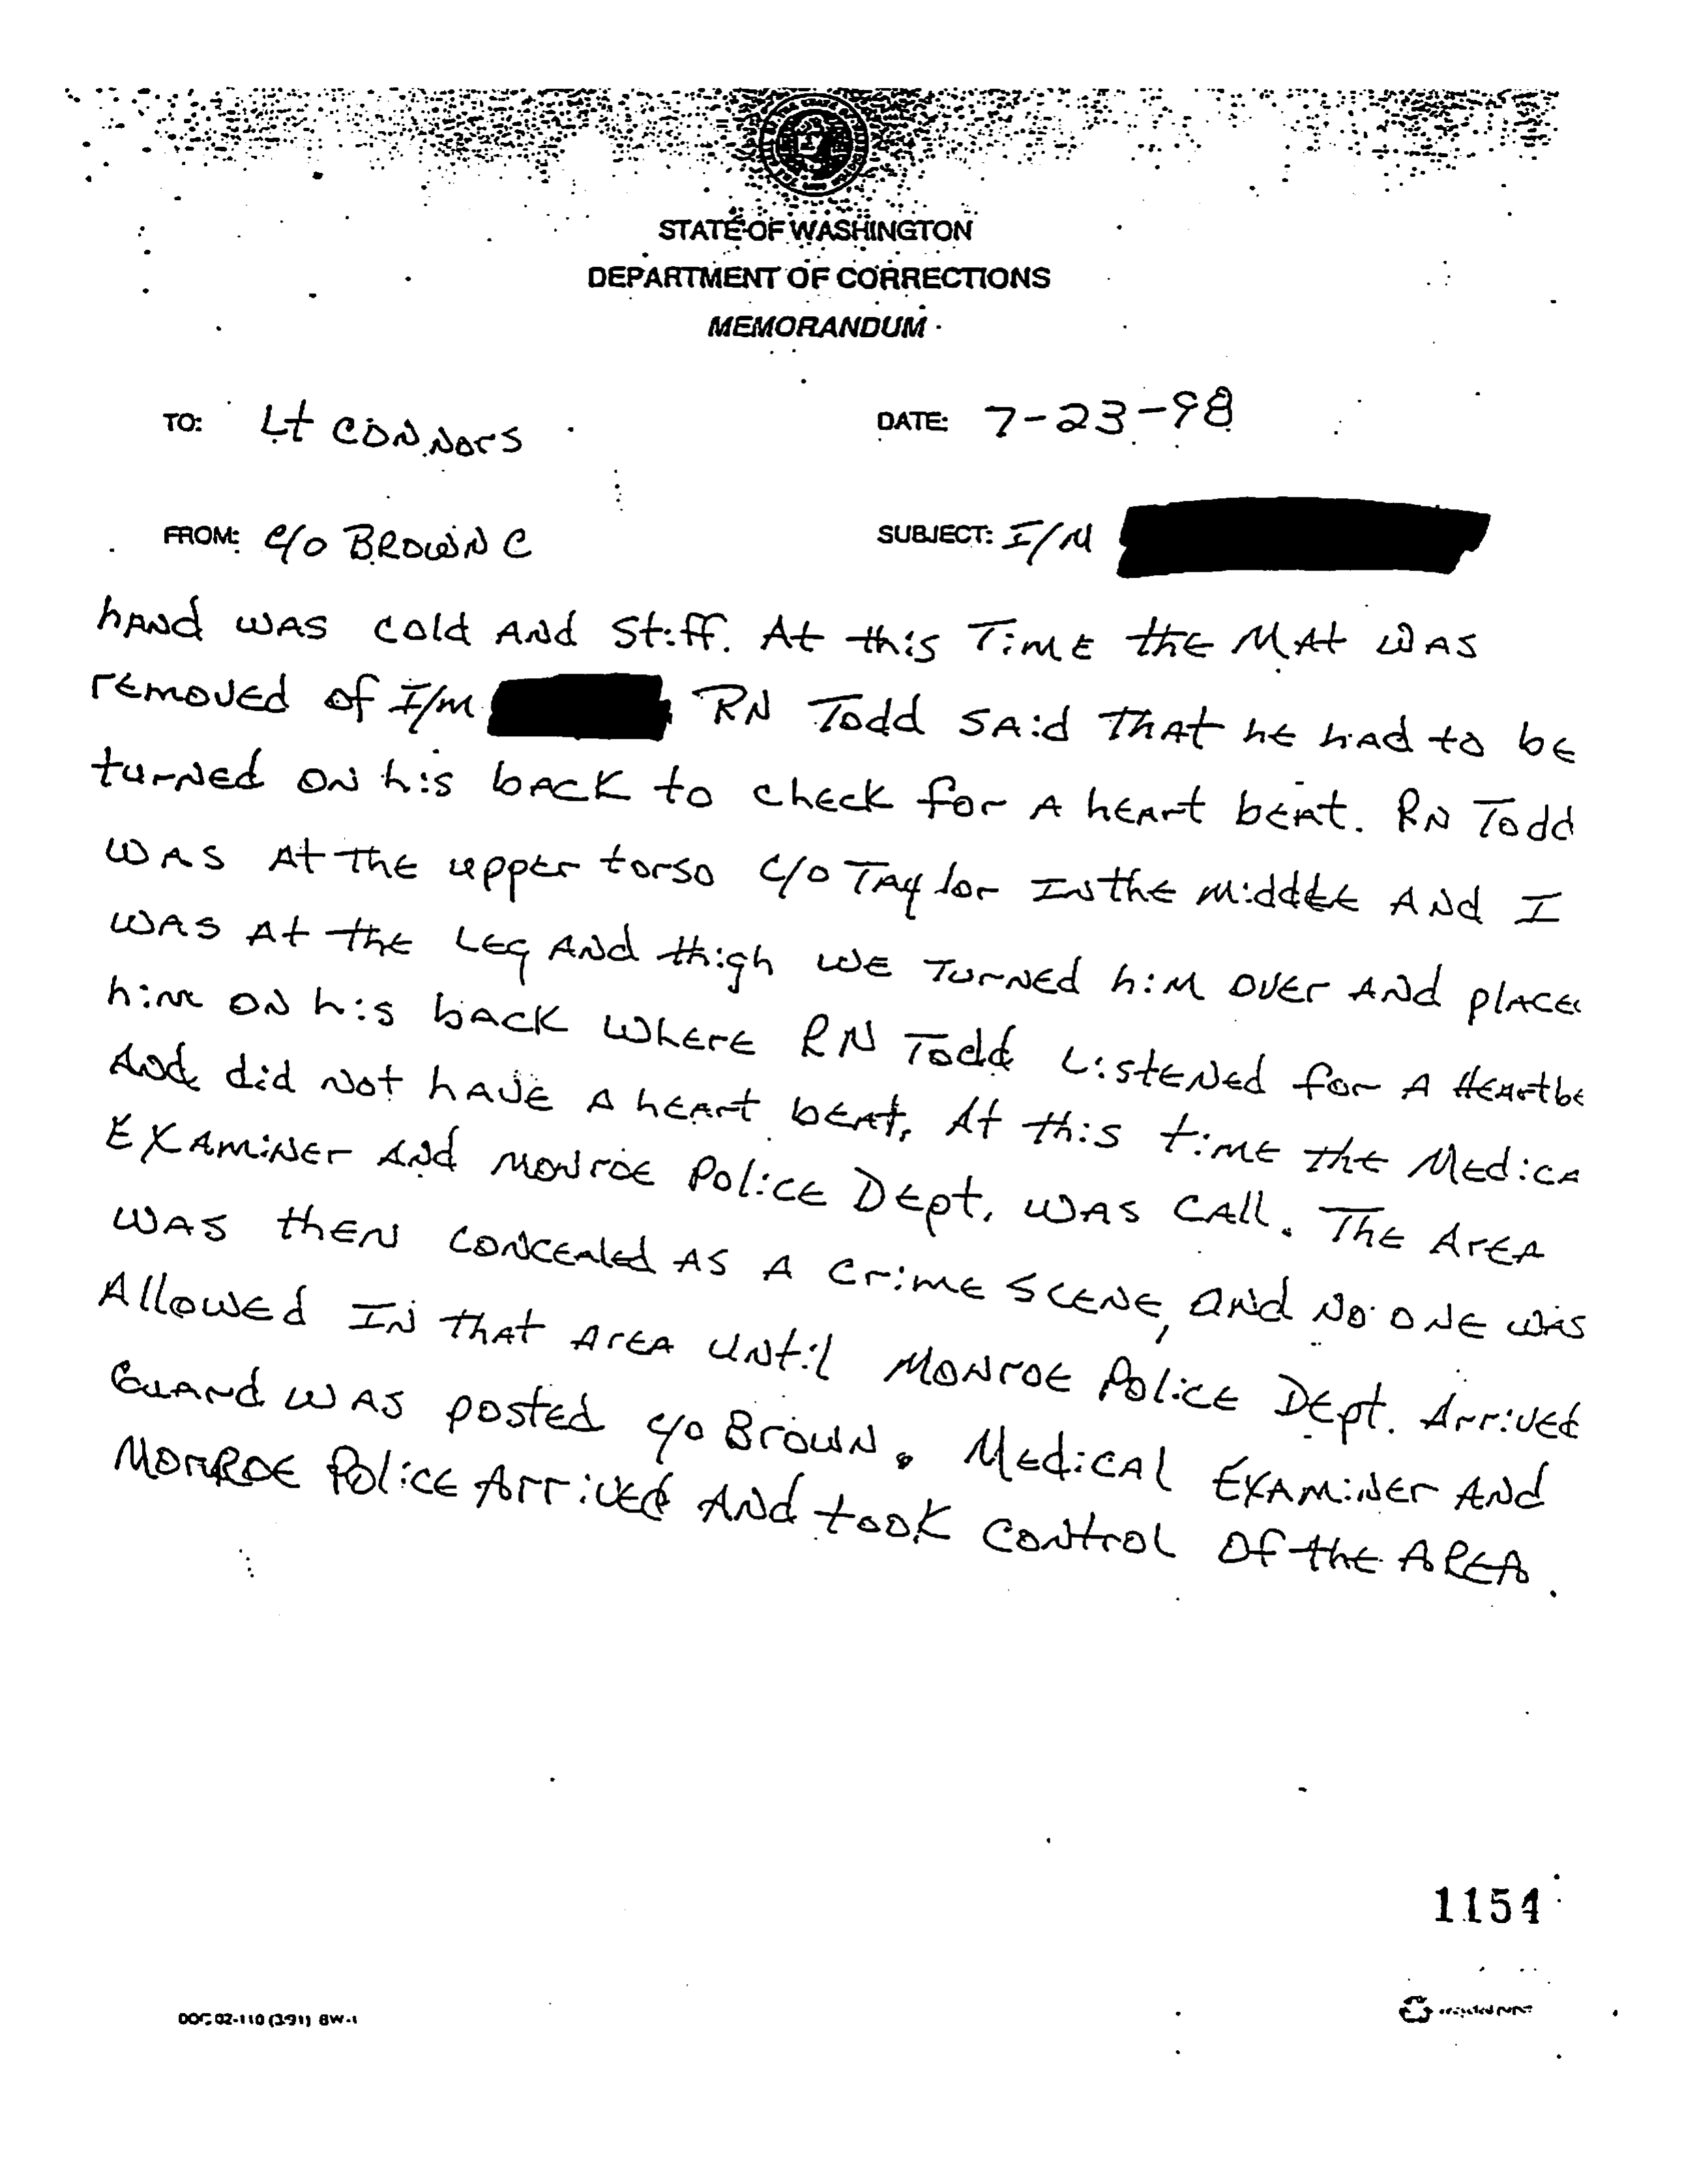 STATE OF WASHINGTON
DEPARTMENT OF CORRECTIONS
MEMORANDUM
TO: Lt CONNors
DATE: 7-23-98
FROM: C/O BROWN C
SUBJECT: I/M
hAND WAS Cold AND Stiff. At this TimE thE MAt WAS
rEmovEd of I/m RN Todd SAid THAt hE hAd to bE
turNEd ON his bACK to chECK for A hEArt bEAt. RN Todd
WAS At ThE uppEr torso C/O TAylor IN thE middlE ANd I
WAS At thE LEg ANd thigh WE TurNEd him ovEr ANd plACE
him ON his bACK WhErE RN Todd ListENEd for A HEArtbE
ANd did Not hAvE A hEArt bEAt. At this timE thE MEdicA
EXAmiNEr ANd MoNroE PolicE DEpt. WAS CAll. ThE ArEA
WAS thEN CoNCEAlEd AS A CrimE SCENE, aNd No ONE WAS
AllowEd IN thAt ArEA uNtil MoNroE PolicE DEpt. ArrivEd
GuArd WAS postEd C/O BrowN. MEdiCAl EXAmiNEr ANd
MONROE PoliCE ArrivEd ANd tooK CoNtrol Of thE AREA.
1154
DOC 02-110 (3/91) BW-1
recycled paper